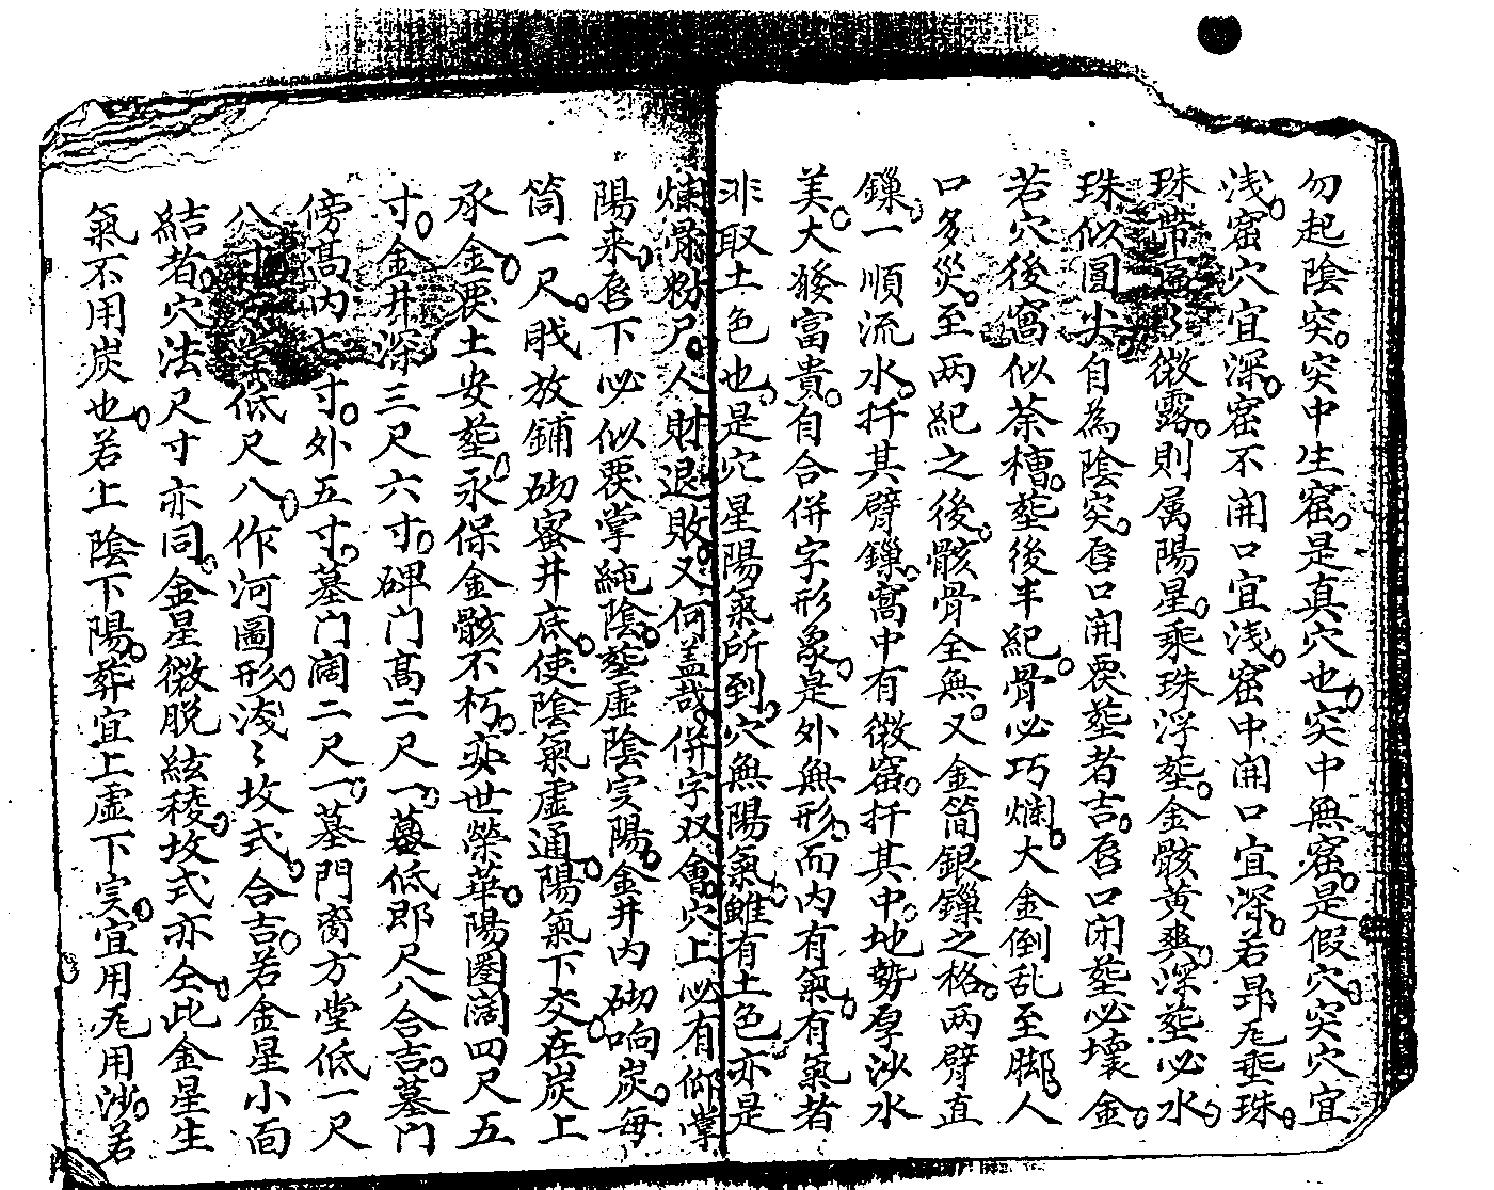 勿起陰突。突中生窟。是真穴也。突中無窟。是假穴。突穴宜
浅。窟穴宜深。窟不開口宜浅。窟中開口宜深。若昂尨垂珠。
珠帶 微露。則属陽星。乘珠浮塟。金骸黄爽。深塟必水。
珠似圓尖。自為陰突。唇口開要塟者吉。唇口闭塟必壞金。
若穴後窩似茶槽。塟後半紀骨必巧爛。大金倒乱至脚。人
口多災。至两紀之後。骸骨全無。又金筒銀鏁之格。两臂直
鏁。一順流水。扦其臂鏁。窩中有微窟。扦其中。地勢厚沙水
美。大發富貴。自合併字形象。是外無形。而内有氣。有氣者
非取土色也。是穴星陽氣所到。穴無陽氣。雖有土色。亦是
爛骨粉尸。人財退敗。又何盖哉。併字双會。穴上必有仰掌
陽来。唇下必似要掌純陰。塟虚陰实陽。金井内砌响炭。每
筒一尺。戝放鋪砌蜜井底。使陰氣虚通陽。氣下交在炭上
承金。要土安塟。永保金骸不朽。奕世榮華。陽圏阔四尺五
寸。金井深三尺六寸。碑门高二尺一。墓低郎尺八合吉。墓门
傍高内七寸。外五寸。墓门阔二尺一。墓門离方堂低一尺
八寸 堂低尺八。作河圖形。浅〻坟式。合吉。若金星小面
結者。穴法尺寸亦同。金星微脱絃稜。坟式亦仝。此金星生
氣不用炭也。若上陰下陽。葬宜上虚下实。宜用尨用沙。若